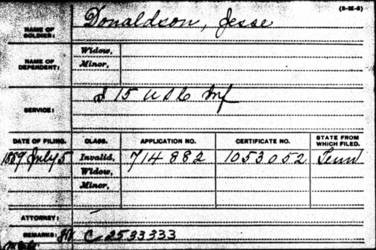 (3-35-6)
NAME OF SOLDIER: Donaldson, Jesse
NAME OF DEPENDENT: Widow,
Minor,
SERVICE: I 15 U S C Inf
DATE OF FILING. CLASS. APPLICATION NO. CERTIFICATE NO. STATE FROM WHICH FILED.
1889 July 5 Invalid, 714882 1053052 Tenn
Widow,
Minor,
ATTORNEY:
REMARKS: C 2533333